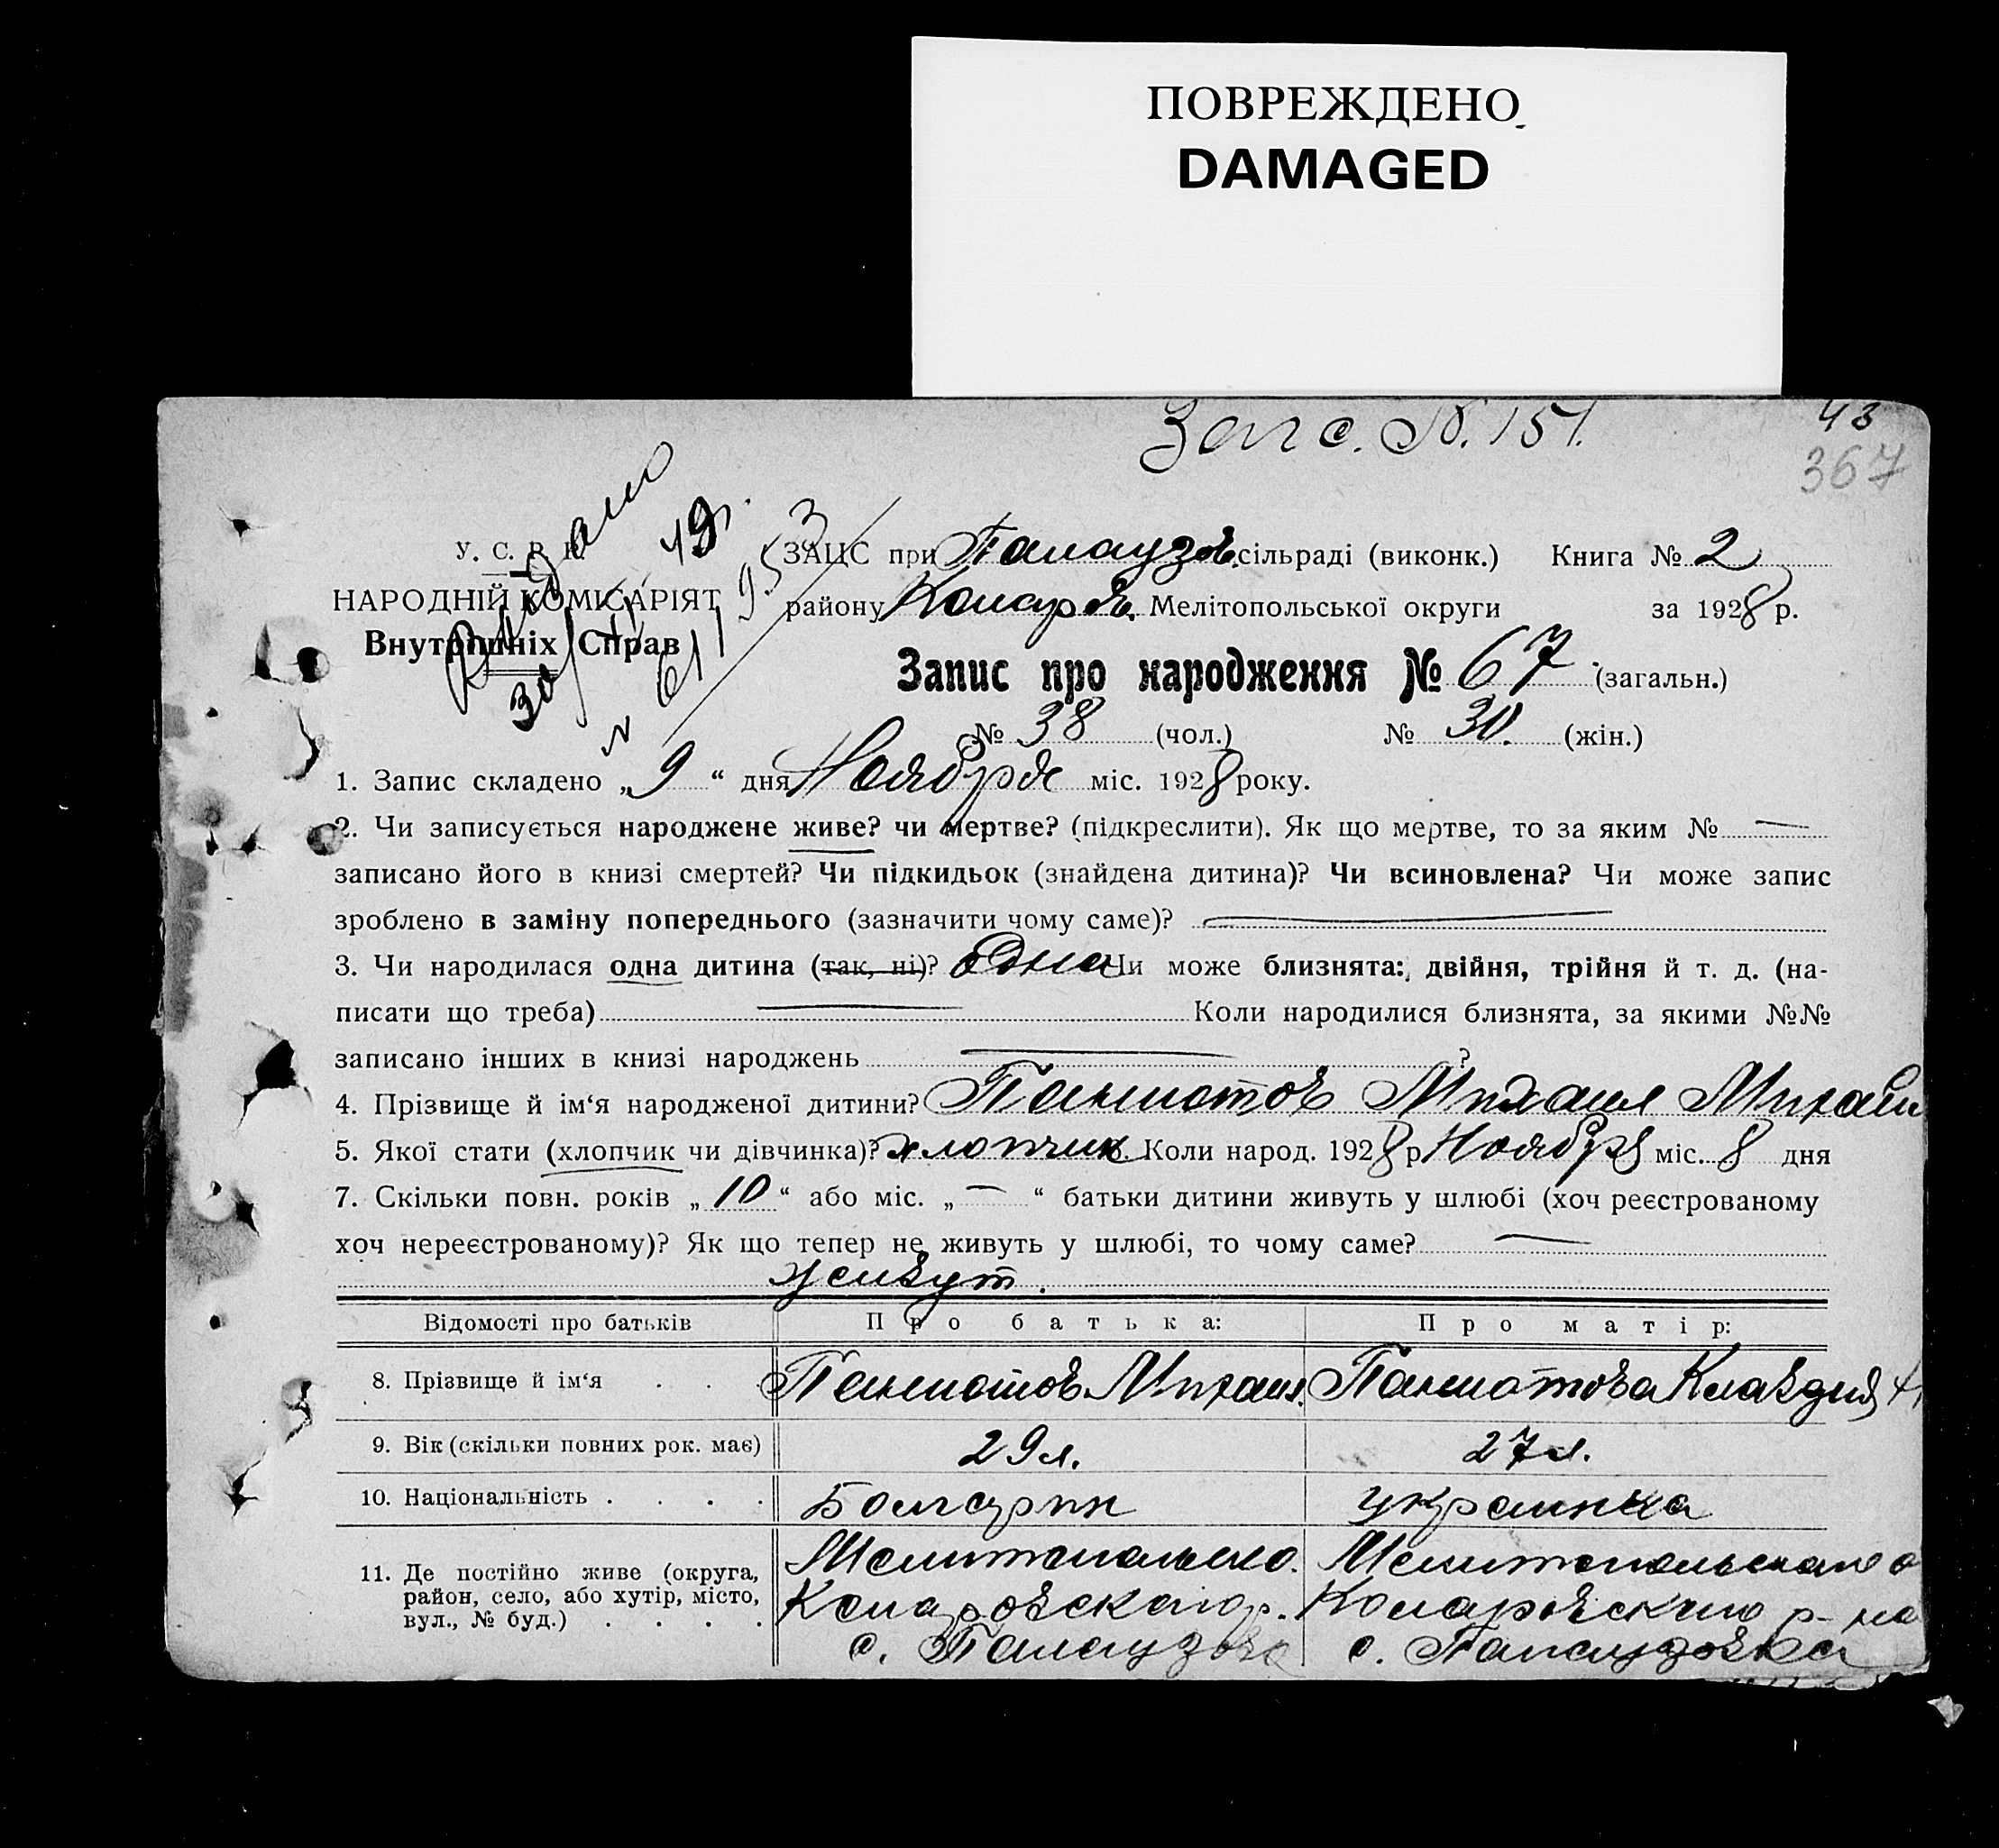 ПОВРЕЖДЕНО
DAMAGED
Зап с. N. 151.
43
367
Видано
У. С. Р. Р.
НАРОДНІЙ КОМІСАРІЯТ
Внутрішніх Справ
N 611953
ЗАЦС при Палаузов. сільраді (виконк.) Книга № 2
району Комаров. Мелітопольської округи за 1928 р.
Запис про народження № 67 (загальн.)
№ 38 (чол.) № 30. (жін.)
1. Запис складено „9“ дня Ноября міс. 1928 року.
2. Чи записується народжене живе? чи мертве? (підкреслити). Як що мертве, то за яким № —
записано його в книзі смертей? Чи підкидьок (знайдена дитина)? Чи всиновлена? Чи може запис
зроблено в заміну попереднього (зазначити чому саме)? —
3. Чи народилася одна дитина (так, ні)? Одна Чи може близнята: двійня, трійня й т. д. (на-
писати що треба) — Коли народилися близнята, за якими №№
записано інших в книзі народжень — ?
4. Прізвище й ім‘я народженої дитини? Паниотов Михаил Михаи
5. Якої стати (хлопчик чи дівчинка)? хлопчик. Коли народ. 1928 р Ноября міс. 8 дня
7. Скільки повн. років „10“ або міс. „—“ батьки дитини живуть у шлюбі (хоч реєстрованому
хоч нереєстрованому)? Як що тепер не живуть у шлюбі, то чому саме? —
живут.
Відомості про батьків Про батька: Про матір:
8. Прізвище й ім‘я . . Паниотов Михаил. Паниотова Клавдия
9. Вік (скільки повних рок. має) 29 л. 27 л.
10. Національність . . . . Болгарин украинка
11. Де постійно живе (округа, Мелитопольско. Мелитопольского о
район, село, або хутір, місто, Комаровского р. Комаровского р-на
вул., № буд.) . . . . с. Палаузовка с. Палаузовка